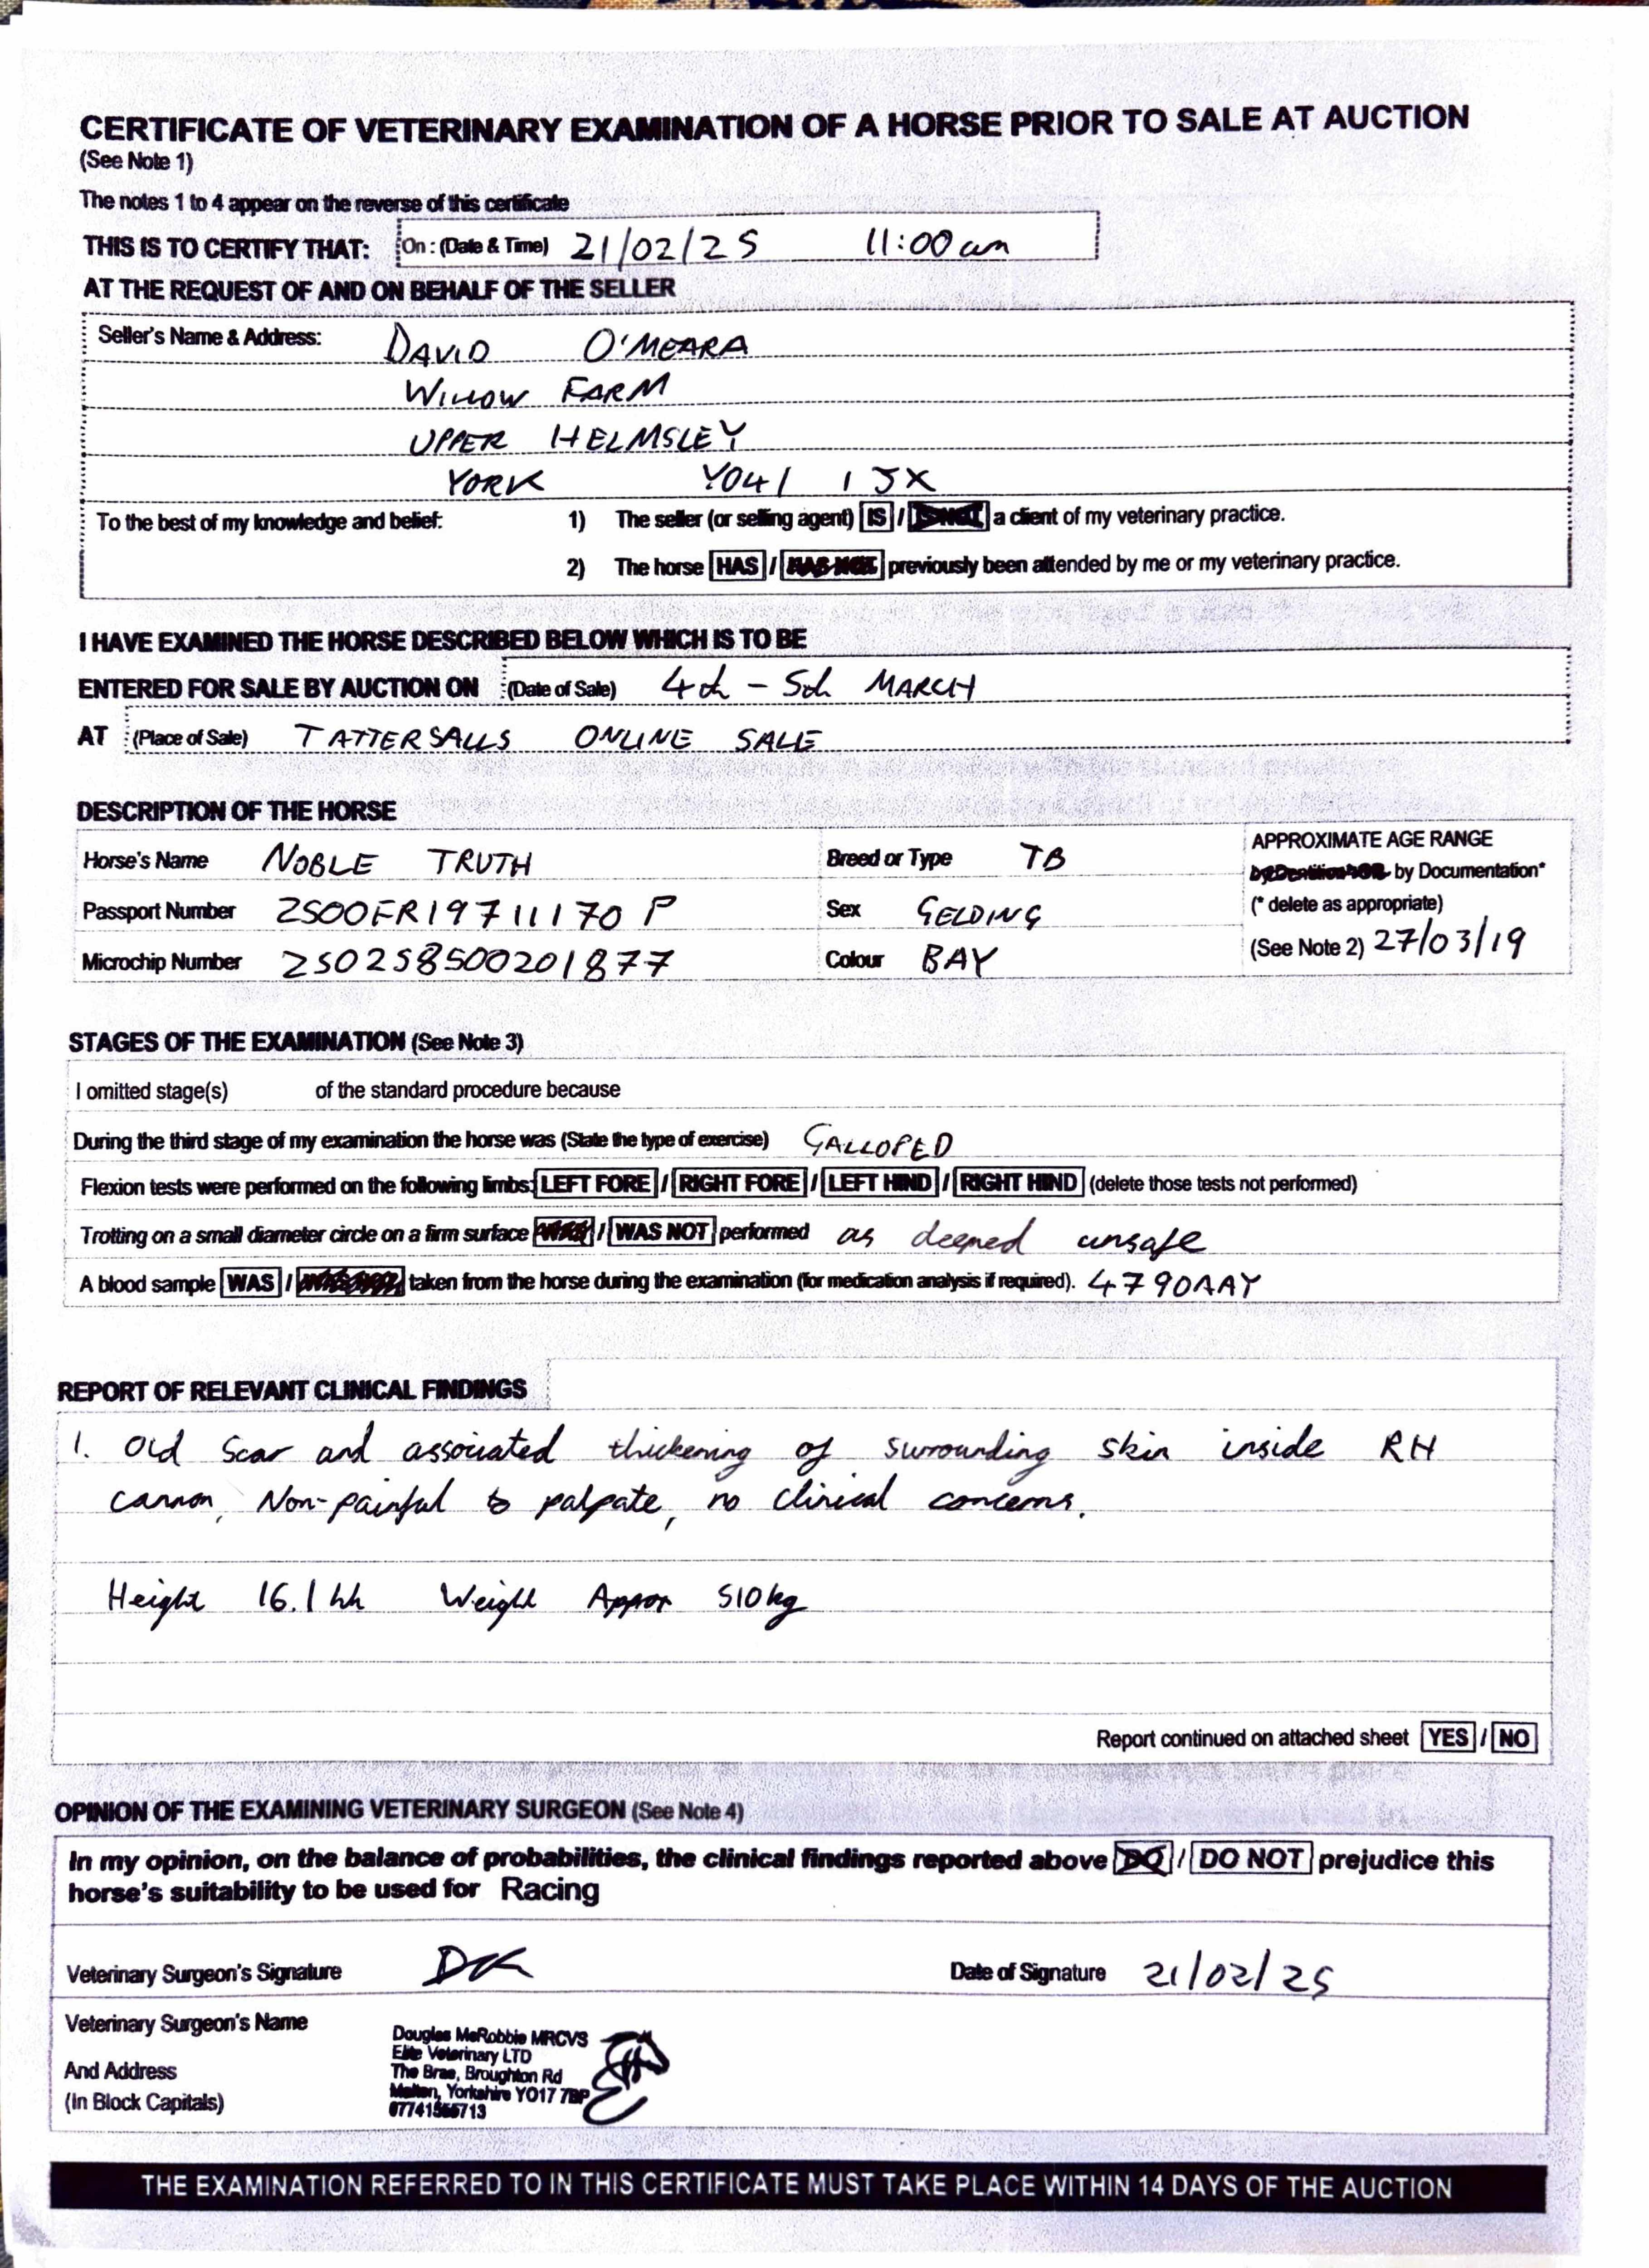 CERTIFICATE OF VETERINARY EXAMINATION OF A HORSE PRIOR TO SALE AT AUCTION
(See Note 1)
The notes 1 to 4 appear on the reverse of this certificate
THIS IS TO CERTIFY THAT: On : (Date & Time) 21/02/25 11:00am
AT THE REQUEST OF AND ON BEHALF OF THE SELLER
Seller's Name & Address: DAVID O'MEARA
WILLOW FARM
UPPER HELMSLEY
YORK YO41 1JX
To the best of my knowledge and belief: 1) The seller (or selling agent) IS / IS NOT a client of my veterinary practice.
2) The horse HAS / HAS NOT previously been attended by me or my veterinary practice.
I HAVE EXAMINED THE HORSE DESCRIBED BELOW WHICH IS TO BE
ENTERED FOR SALE BY AUCTION ON (Date of Sale) 4th - 5th MARCH
AT (Place of Sale) TATTERSALLS ONLINE SALE
DESCRIPTION OF THE HORSE
Horse's Name NOBLE TRUTH Breed or Type TB APPROXIMATE AGE RANGE
by Dentition* OR by Documentation*
Passport Number 2500FR19711170P Sex GELDING (* delete as appropriate)
Microchip Number 250258500201877 Colour BAY (See Note 2) 27/03/19
STAGES OF THE EXAMINATION (See Note 3)
I omitted stage(s) of the standard procedure because
During the third stage of my examination the horse was (State the type of exercise) GALLOPED
Flexion tests were performed on the following limbs: LEFT FORE / RIGHT FORE / LEFT HIND / RIGHT HIND (delete those tests not performed)
Trotting on a small diameter circle on a firm surface WAS / WAS NOT performed as deemed unsafe
A blood sample WAS / WAS NOT taken from the horse during the examination (for medication analysis if required). 4790AAY
REPORT OF RELEVANT CLINICAL FINDINGS
1. Old scar and associated thickening of surrounding skin inside RH
cannon, Non-painful to palpate, no clinical concerns.
Height 16.1hh Weight Approx 510kg
Report continued on attached sheet YES / NO
OPINION OF THE EXAMINING VETERINARY SURGEON (See Note 4)
In my opinion, on the balance of probabilities, the clinical findings reported above DO / DO NOT prejudice this
horse's suitability to be used for Racing
Veterinary Surgeon's Signature Date of Signature 21/02/25
Veterinary Surgeon's Name
And Address
(In Block Capitals)
Douglas McRobbie MRCVS
Elite Veterinary LTD
The Brae, Broughton Rd
Malton, Yorkshire YO17 7BP
THE EXAMINATION REFERRED TO IN THIS CERTIFICATE MUST TAKE PLACE WITHIN 14 DAYS OF THE AUCTION